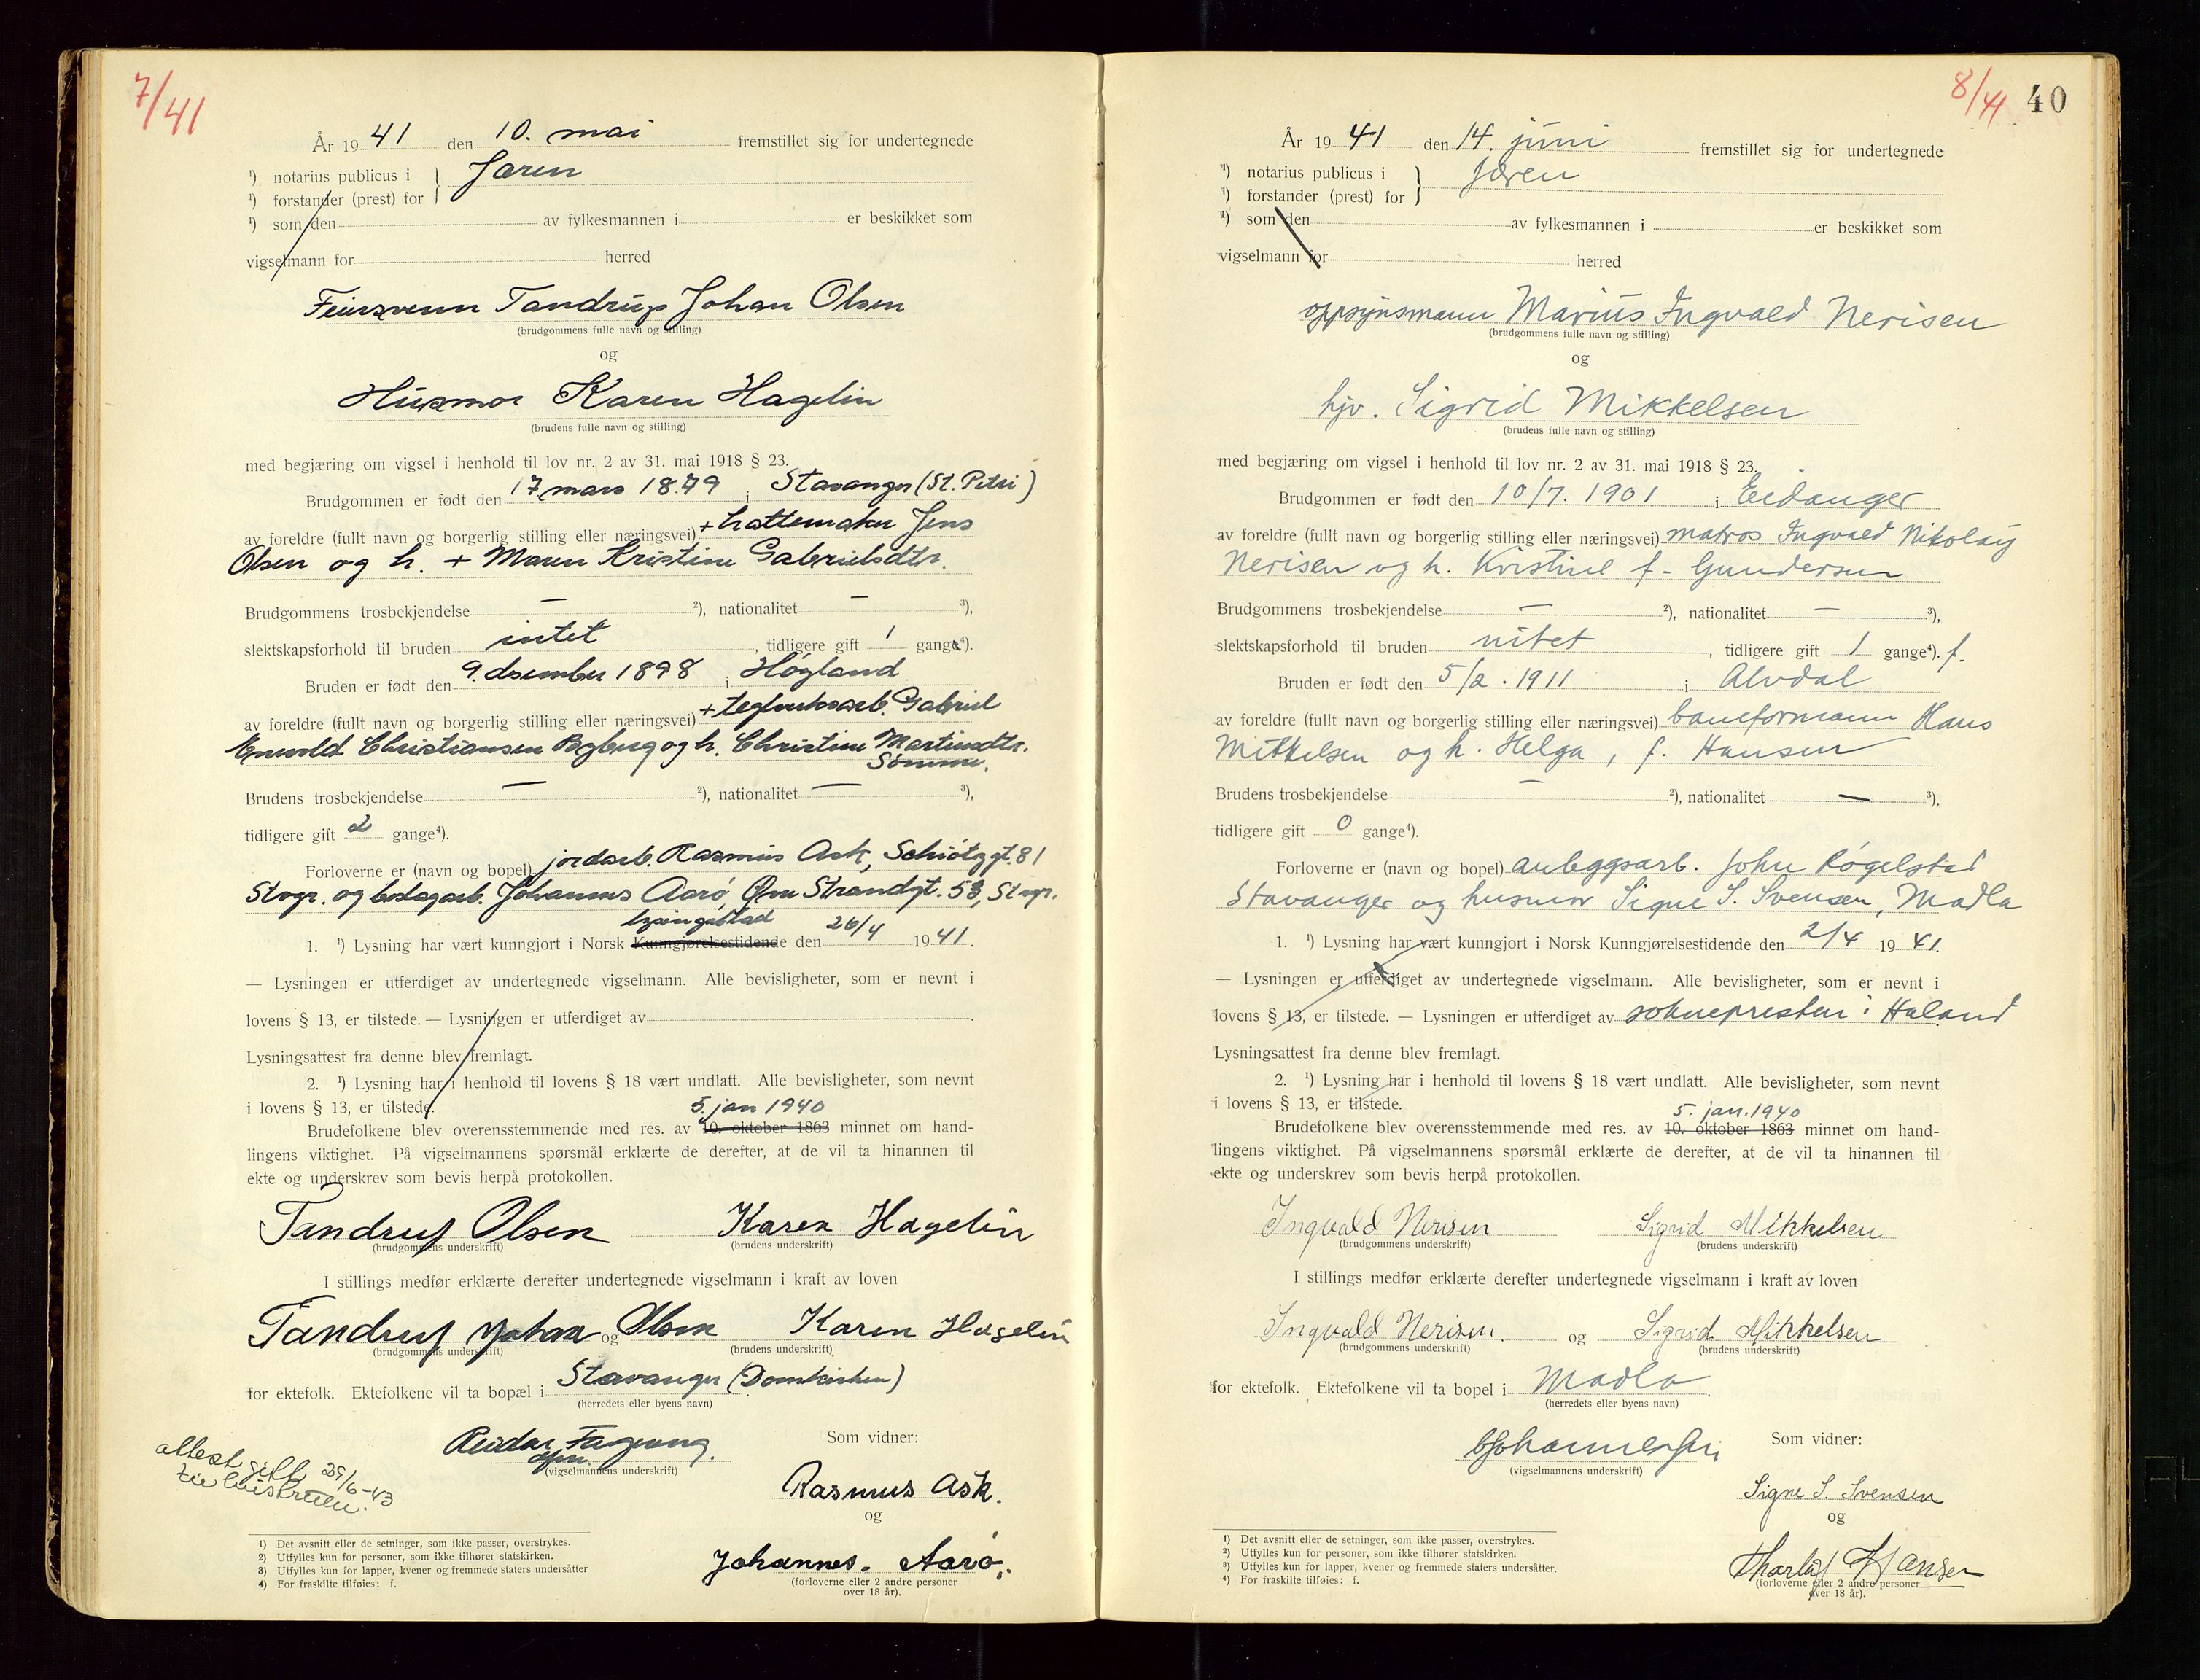 7/41
År 19 41 den 10. mai fremstillet sig for undertegnede
¹) notarius publicus i } Jæren
¹) forstander (prest) for
¹) som den av fylkesmannen i er beskikket som
vigselmann for herred
Feiersvenn Tandrup Johan Olsen
(brudgommens fulle navn og stilling)
og
Husmor Karen Hagelin
(brudens fulle navn og stilling)
med begjæring om vigsel i henhold til lov nr. 2 av 31. mai 1918 § 23.
Brudgommen er født den 17 mars 1879 i Stavanger (St. Petri)
av foreldre (fullt navn og borgerlig stilling eller næringsvei) + hattemaker Jens
Olsen og h. + Maren Kristine Gabrielsdtr.
Brudgommens trosbekjendelse — ²), nationalitet — ³),
slektskapsforhold til bruden intet, tidligere gift 1 gang⁴).
Bruden er født den 9. desember 1898 i Høgland
av foreldre (fullt navn og borgerlig stilling eller næringsvei) + teglverksarb. Gabriel
Enevold Christiansen Byberg og h. Christine Martinsdtr.
Sømme.
Brudens trosbekjendelse — ²), nationalitet — ³),
tidligere gift 2 gange⁴).
Forloverne er (navn og bopel) jordarb. Rasmus Ask, Schiøtzgt. 81
Stvgr. og Johannes Aarø, Øvre Strandgt. 58, Stvgr.
lysingsblad 26/4
1. ¹) Lysning har vært kunngjort i Norsk Kunngjørelsestidende den 1941.
— Lysningen er utferdiget av undertegnede vigselmann. Alle bevisligheter, som er nevnt i
lovens § 13, er tilstede. — Lysningen er utferdiget av .
Lysningsattest fra denne blev fremlagt.
2. ¹) Lysning har i henhold til lovens § 18 vært undlatt. Alle bevisligheter, som nevnt
i lovens § 13, er tilstede.
5. jan 1940
Brudefolkene blev overensstemmende med res. av 10. oktober 1863 minnet om hand-
lingens viktighet. På vigselmannens spørsmål erklærte de derefter, at de vil ta hinannen til
ekte og underskrev som bevis herpå protokollen.
Tandrup Olsen Karen Hagelin
(brudgommens underskrift) (brudens underskrift)
I stillings medfør erklærte derefter undertegnede vigselmann i kraft av loven
Tandrup Johan Olsen og Karen Hagelin
(brudgommens underskrift) (brudens underskrift)
for ektefolk. Ektefolkene vil ta bopæl i Stavanger (Domkirken)
(herredets eller byens navn)
Reidar Som vidner:
(vigselmannens underskrift)
attest gitt 29/6-43
Rasmus Ask.
og
Johannes. Aarø.
(forloverne eller 2 andre personer
over 18 år).
1) Det avsnitt eller de setninger, som ikke passer, overstrykes.
2) Utfylles kun for personer, som ikke tilhører statskirken.
3) Utfylles kun for lapper, kvener og fremmede staters undersåtter
4) For fraskilte tilføies: f.
8/41 40
År 19 41 den 14. juni fremstillet sig for undertegnede
¹) notarius publicus i } Jæren
¹) forstander (prest) for
¹) som den av fylkesmannen i er beskikket som
vigselmann for herred
oppsynsmann Marius Ingvald Nerisen
(brudgommens fulle navn og stilling)
og
hjv. Sigrid Mikkelsen
(brudens fulle navn og stilling)
med begjæring om vigsel i henhold til lov nr. 2 av 31. mai 1918 § 23.
Brudgommen er født den 10/7. 1901 i Eidanger
av foreldre (fullt navn og borgerlig stilling eller næringsvei) matros Ingvald Nikolay
Nerisen og h. Kristine f. Gundersen
Brudgommens trosbekjendelse — ²), nationalitet — ³),
slektskapsforhold til bruden intet, tidligere gift 1 gange⁴). f.
Bruden er født den 5/2. 1911 i Alvdal
av foreldre (fullt navn og borgerlig stilling eller næringsvei) baneformann Hans
Mikkelsen og h. Helga, f. Hansen
Brudens trosbekjendelse — ²), nationalitet — ³),
tidligere gift 0 gange⁴).
Forloverne er (navn og bopel) anleggsarb. John Røgelstad
Stavanger og husmor Signe S. Svensen, Madla
1. ¹) Lysning har vært kunngjort i Norsk Kunngjørelsestidende den 2/4 1941.
— Lysningen er utferdiget av undertegnede vigselmann. Alle bevisligheter, som er nevnt i
lovens § 13, er tilstede. — Lysningen er utferdiget av soknepresten i Håland
Lysningsattest fra denne blev fremlagt.
2. ¹) Lysning har i henhold til lovens § 18 vært undlatt. Alle bevisligheter, som nevnt
i lovens § 13, er tilstede.
5. jan. 1940
Brudefolkene blev overensstemmende med res. av 10. oktober 1863 minnet om hand-
lingens viktighet. På vigselmannens spørsmål erklærte de derefter, at de vil ta hinannen til
ekte og underskrev som bevis herpå protokollen.
Ingvald Nerisen Sigrid Mikkelsen
(brudgommens underskrift) (brudens underskrift)
I stillings medfør erklærte derefter undertegnede vigselmann i kraft av loven
Ingvald Nerisen. og Sigrid Mikkelsen
(brudgommens underskrift) (brudens underskrift)
for ektefolk. Ektefolkene vil ta bopel i Madla.
(herredets eller byens navn)
Som vidner:
(vigselmannens underskrift)
Signe S. Svensen
og
Thorleif Hansen
(forloverne eller 2 andre personer
over 18 år).
1) Det avsnitt eller de setninger, som ikke passer, overstrykes.
2) Utfylles kun for personer, som ikke tilhører statskirken.
3) Utfylles kun for lapper, kvener og fremmede staters undersåtter.
4) For fraskilte tilføies: f.